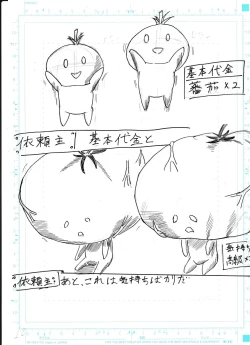 基本代金
蕃茄×2
依頼主：基本代金と
気持ち
依頼主：あと、これは気持ちばかりだ